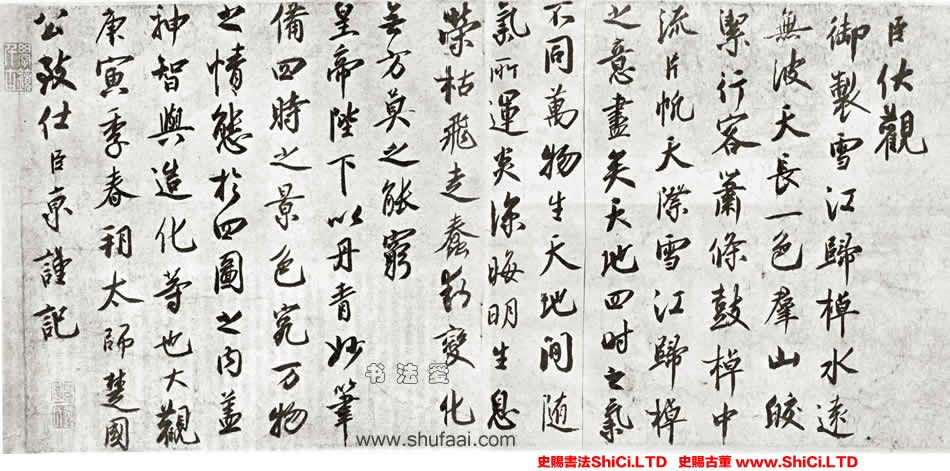 臣伏觀
御製雪江歸棹水遠
無波天長一色羣山皎
潔行客蕭條鼓棹中
流片帆天際雪江歸棹
之意盡矣天地四时之氣
不同萬物生天地間随
氣所運炎涼晦明生息
榮枯飛走蠢動變化
无方莫之能窮
皇帝陛下以丹青妙筆
備四時之景色究万物
之情態於四圖之内盖
神智與造化等也大觀
庚寅季春朔太師楚國
公致仕臣京謹記
书法爱
www.shufaai.com
史賜書法ShiCi.LTD 史賜古董 www.ShiCi.LTD